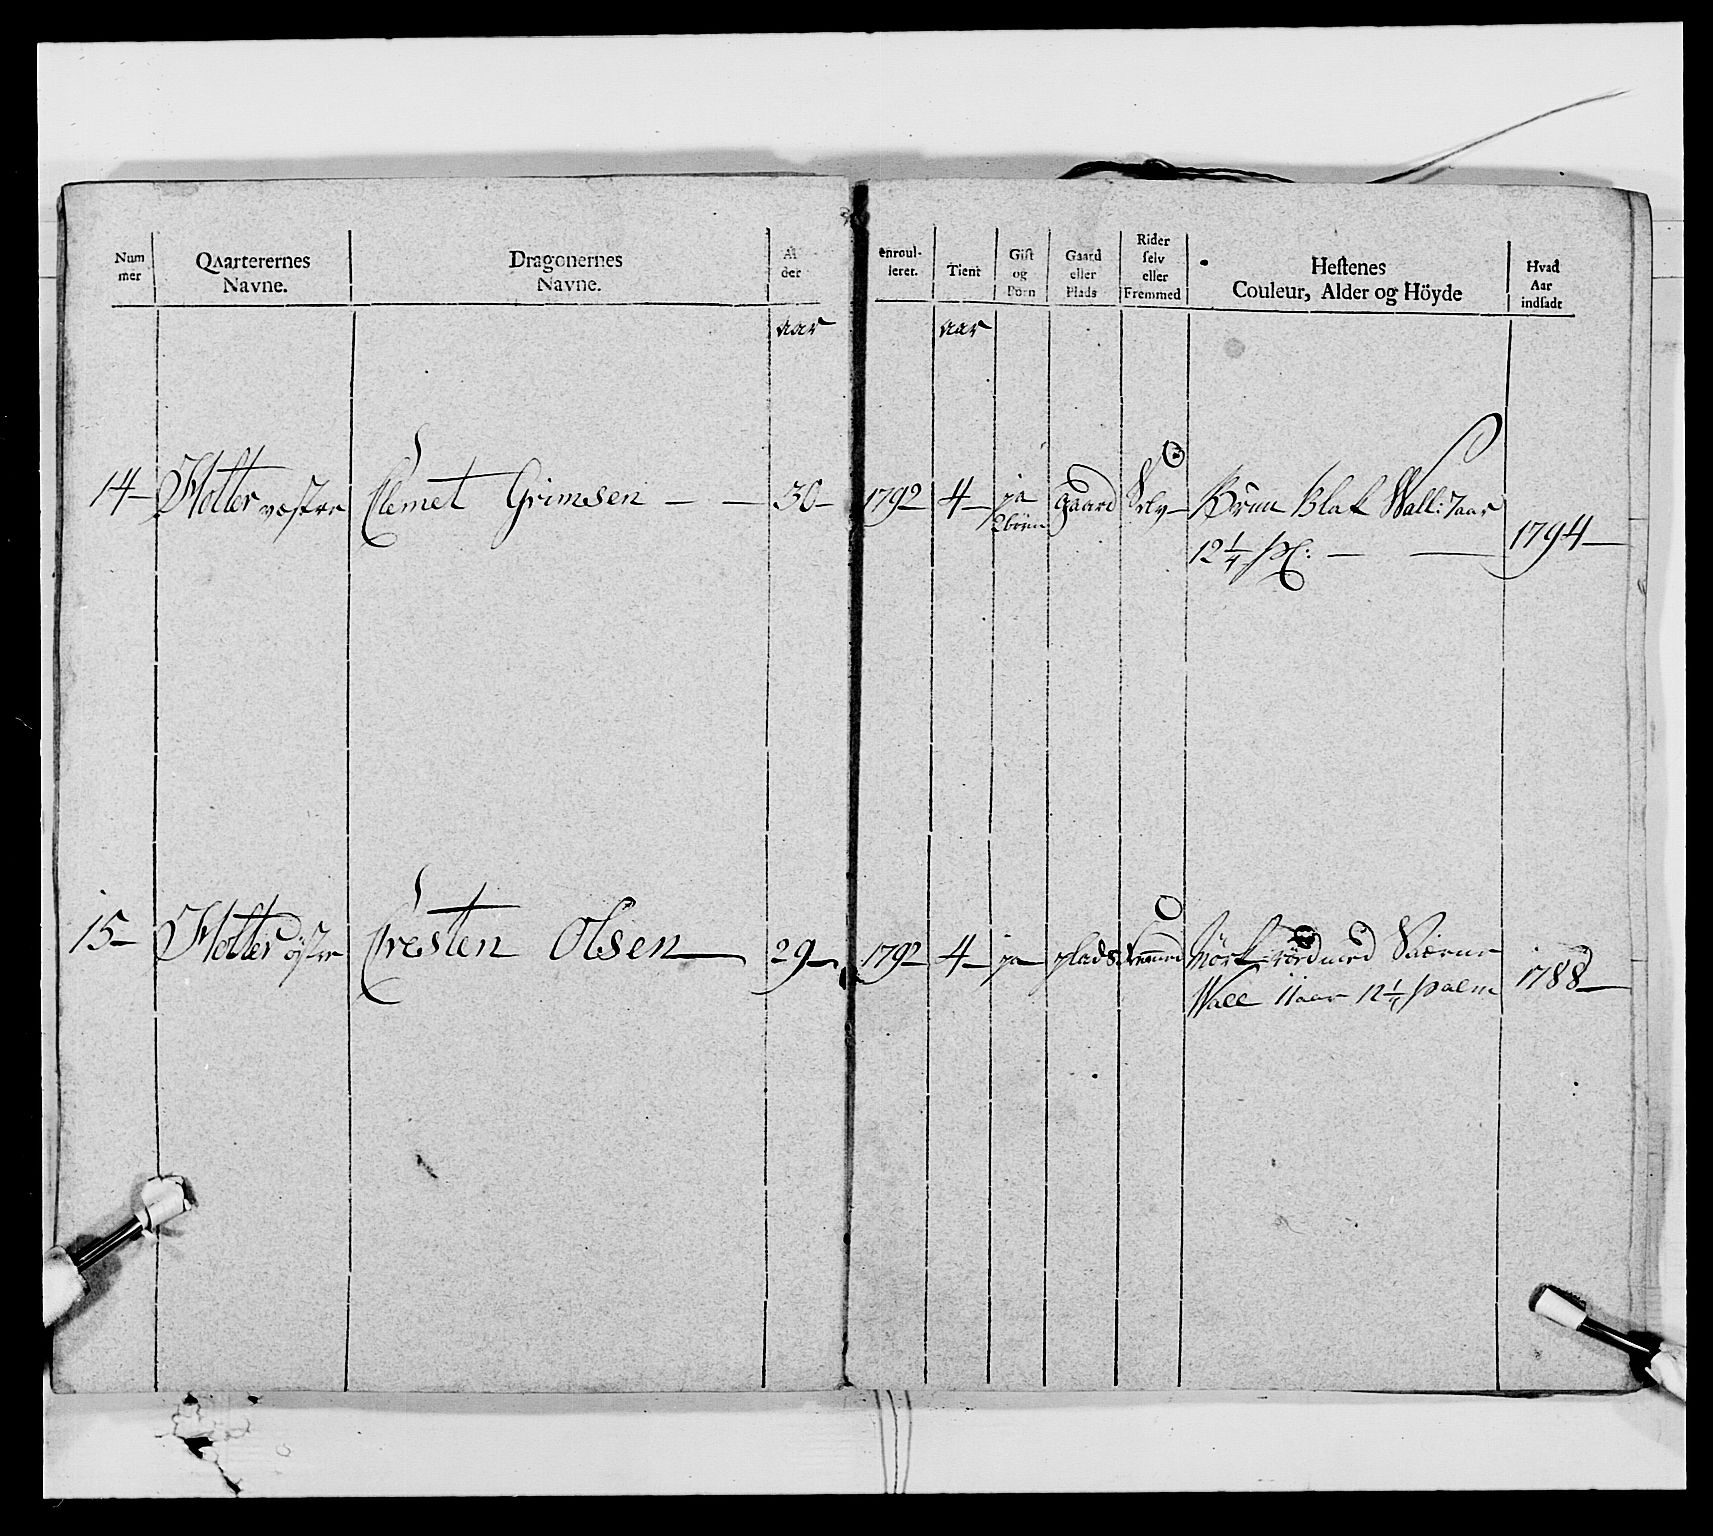 Num
mer
Qvarterernes
Navne.
Dragonernes
Navne.
Al
der
enroul-
leret.
Tient
Gift
og
Börn
Gaard
eller
Plads
Rider
selv
eller
Fremmed
Hestenes
Couleur, Alder og Höyde
Hvad
Aar
indsadt
aar
aar
14 Holter vestre Clemet Grimsen 30 1792 4 ja gaard Selv Brun Blak Wall: 7 aar
2 börn
12 1/4 pl: 1794
15 Holter östre Cresten Olsen 29 1792 4 ja plads fremmed Mörk röd med Stierne
Wall 11 aar 12 1/4 palm 1788